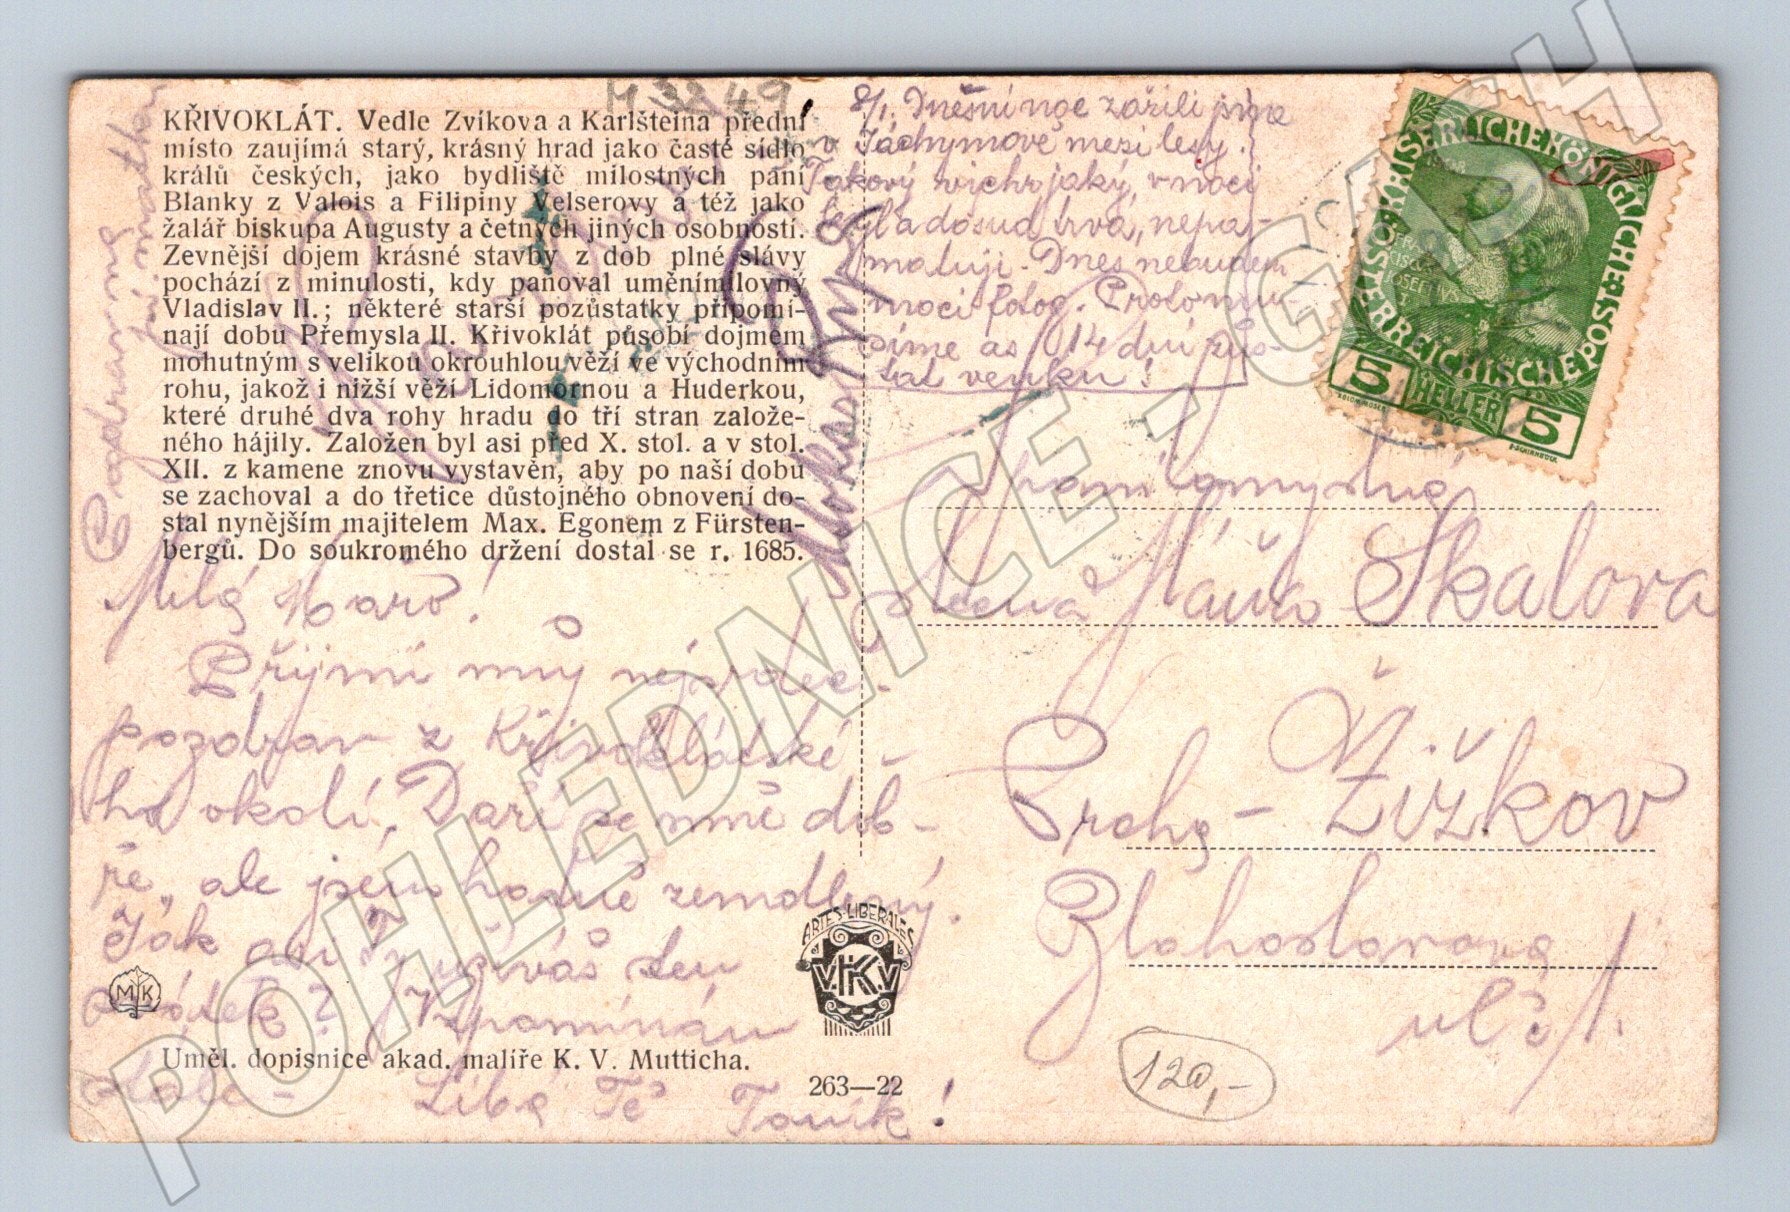 M 3249
KŘIVOKLÁT. Vedle Zvíkova a Karlšteina přední
místo zaujímá starý, krásný hrad jako časté sídlo
králů českých, jako bydliště milostných paní
Blanky z Valois a Filipiny Velserovy a též jako
žalář biskupa Augusty a četných jiných osobností.
Zevnější dojem krásné stavby z dob plné slávy
pochází z minulosti, kdy panoval uměnímilovný
Vladislav II.; některé starší pozůstatky připomí-
nají dobu Přemysla II. Křivoklát působí dojmem
mohutným s velikou okrouhlou věží ve východním
rohu, jakož i nižší věží Lidomornou a Huderkou,
které druhé dva rohy hradu do tří stran založe-
ného hájily. Založen byl asi před X. stol. a v stol.
XII. z kamene znovu vystavěn, aby po naší dobu
se zachoval a do třetice důstojného obnovení do-
stal nynějším majitelem Max. Egonem z Fürsten-
bergů. Do soukromého držení dostal se r. 1685.
Milá Mařo!
Přijmi můj
pozdrav z Křivoklátské
ho okolí, Daří se mně dob-
ře, ale jsem hodně zemdlený.
Jak asi Ty užíváš ten
svátek? Vzpomínám
Líbá Tě Toník!
8/I. Dnešní noc zažili jsme
v Jáchymově mezi lesy.
Takový vichr jaký, v noci
byl a dosud trvá, nepa-
matuji. Dnes nebudem
moci fotog. Proto mu-
síme as 14 dní zůs-
tat venku!
KAISERLICHE KÖNIGLICHE ÖSTERREICHISCHE POST
5 HELLER 5
Slečna Máňa Skalova
Praha - Žižkov
Blahoslavova
ul. č.
ARTES LIBERALES
V.K.K.V
MK
Uměl. dopisnice akad. malíře K. V. Mutticha.
263—22
120,-
POHLEDNICE - CASH